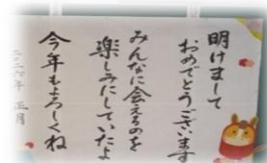 明けまして
おめでとうございます
みんなに会えるのを
楽しみにしていたよ
今年もよろしくね
二〇二六年 正月